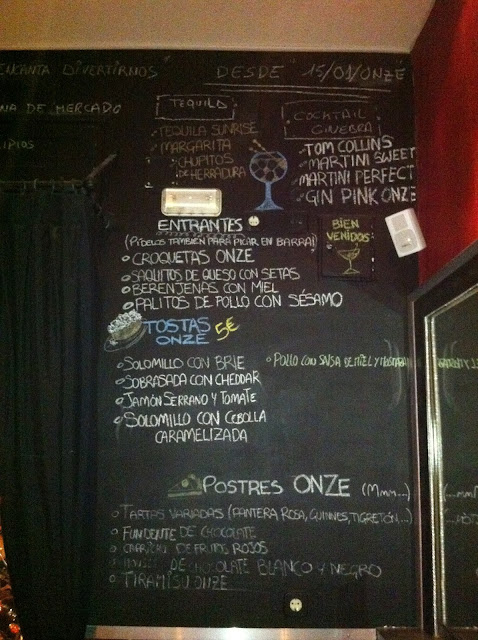 ENCANTA DIVERTIRNOS" DESDE "15/01/ONZE
NA DE MERCADO
CIPIOS
TEQUILA
TEQUILA SUNRISE
MARGARITA
CHUPITOS
DE HERRADURA
COCKTAIL
GINEBRA
TOM COLLINS
MARTINI SWEET
MARTINI PERFECT
GIN PINK ONZE
BIEN
VENIDOS:
ENTRANTES
(PÍDELOS TAMBIÉN PARA PICAR EN BARRA)
CROQUETAS ONZE
SAQUITOS DE QUESO CON SETAS
BERENJENAS CON MIEL
PALITOS DE POLLO CON SÉSAMO
TOSTAS 5€
ONZE
SOLOMILLO CON BRIE
SOBRASADA CON CHEDDAR
JAMÓN SERRANO Y TOMATE
SOLOMILLO CON CEBOLLA
CARAMELIZADA
POLLO CON SALSA DE MIEL Y MOSTAZA
POSTRES ONZE (Mmm...)
TARTAS VARIADAS (PANTERA ROSA, GUINNES, TIGRETÓN...)
FUNDENTE DE CHOCOLATE
DE FRUTOS ROJOS
DE CHOCOLATE BLANCO Y NEGRO
TIRAMISU ONZE